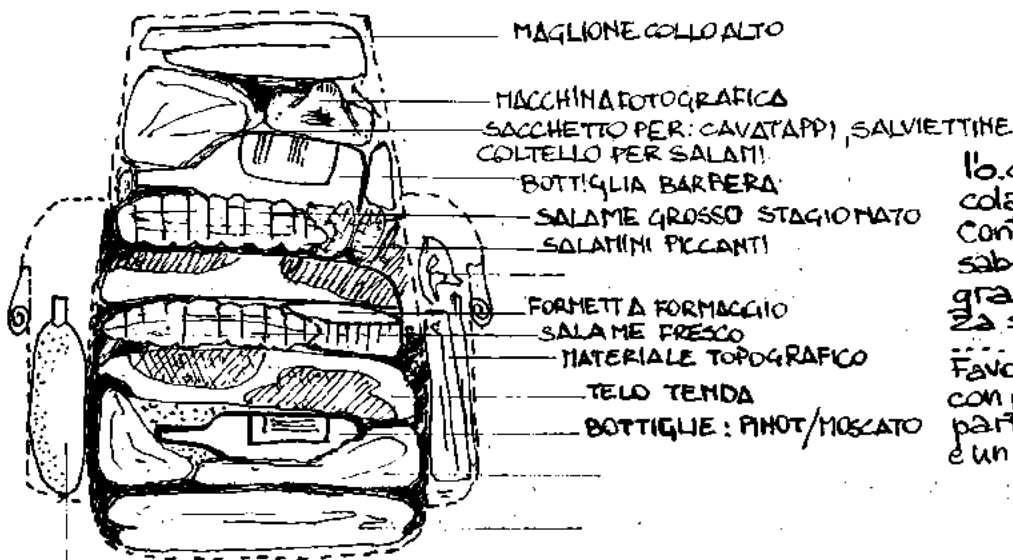 MAGLIONE COLLO ALTO
MACCHINA FOTOGRAFICA
SACCHETTO PER: CAVATAPPI, SALVIETTINE
COLTELLO PER SALAMI
BOTTIGLIA BARBERA
SALAME GROSSO STAGIONATO
SALAMINI PICCANTI
FORMETTA FORMAGGIO
SALAME FRESCO
MATERIALE TOPOGRAFICO
TELO TENDA
BOTTIGLIE: PINOT/MOSCATO
cola
con
sab
gra
za s
Favo
con
par
è un